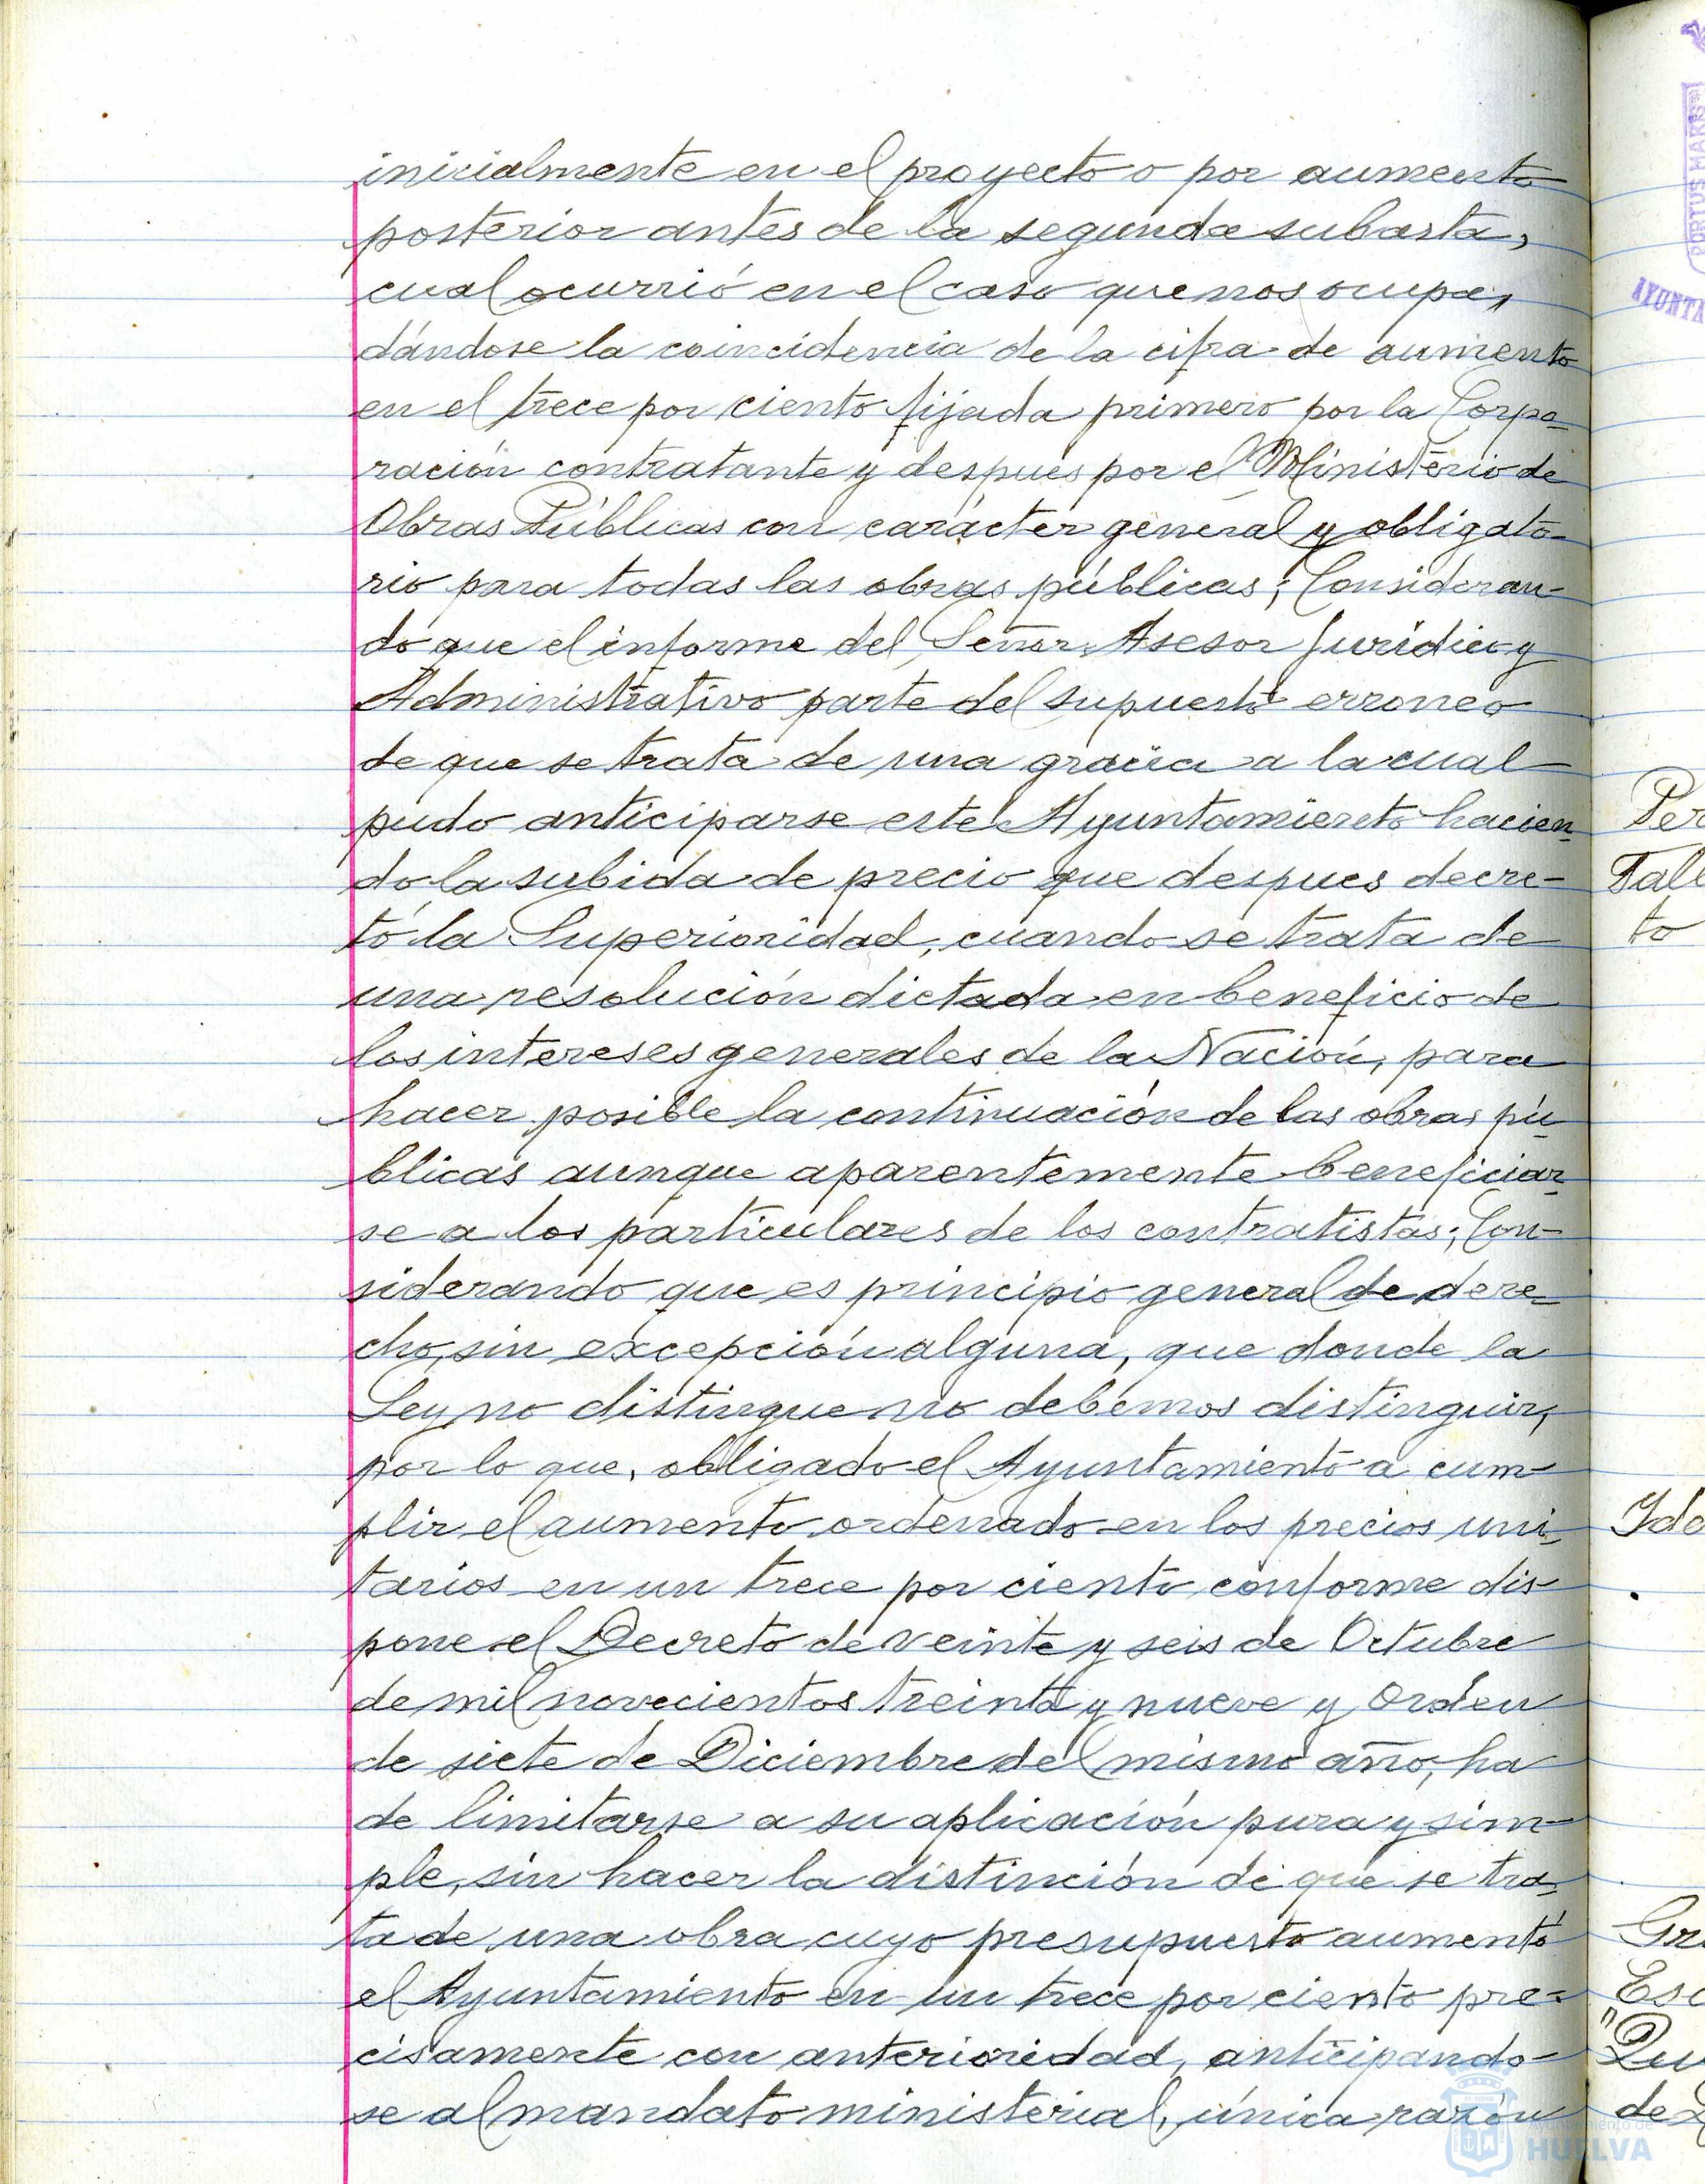 inicialmente en el proyecto o por aumento
posterior antes de la segunda subasta,
cual ocurrió en el caso que nos ocupa,
dándose la coincidencia de la cifra de aumento
en el trece por ciento fijada primero por la Corpo-
ración contratante y despues por el Ministerio de
Obras Públicas con carácter general y obligato-
rio para todas las obras públicas; Consideran-
do que el informe del Señor Asesor Jurídico y
Administrativo parte del supuesto erroneo
de que se trata de una gracia a la cual
pudo anticiparse este Ayuntamiento hacien-
do la subida de precio que despues decre-
tó la Superioridad, cuando se trata de
una resolución dictada en beneficio de
los intereses generales de la Nación, para
hacer posible la continuación de las obras pú-
blicas aunque aparentemente beneficiar-
se a los particulares de los contratistas; Con-
siderando que es principio general de dere-
cho, sin excepción alguna, que donde la
Ley no distingue no debemos distinguir,
por lo que, obligado el Ayuntamiento a cum-
plir el aumento ordenado en los precios uni-
tarios en un trece por ciento conforme dis-
pone el Decreto de veinte y seis de Octubre
de mil novecientos treinta y nueve y Orden
de siete de Diciembre del mismo año, ha
de limitarse a su aplicación pura y sim-
ple, sin hacer la distinción de que se tra-
ta de una obra cuyo presupuesto aumentó
el Ayuntamiento en un trece por ciento pre-
cisamente con anterioridad, anticipando-
se al mandato ministerial, única razón
PORTUS MARIS
AYUNTA
Per
Tall
to
Yde
Gra
Esc
"Qu
de
HUELVA